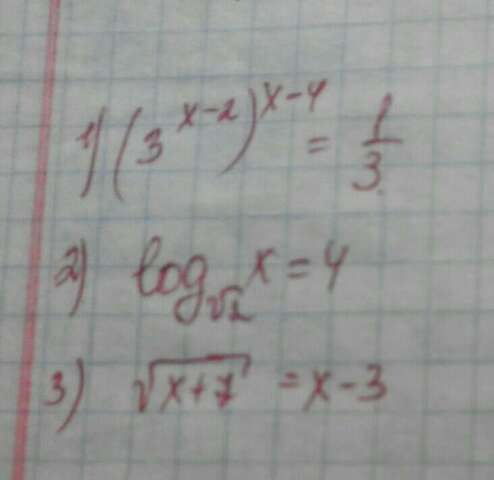 1) (3^{x-2})^{x-4} = \frac{1}{3}
2) log_{√2} x = 4
3) √(x+7) = x-3